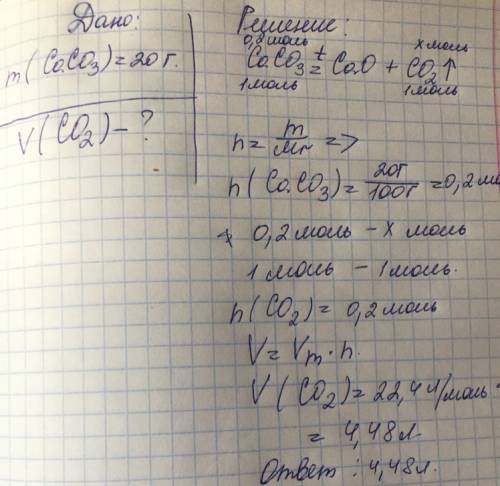 Дано:
m(CaCO3)=20г.
V(CO2)-?
Решение:
0,2моль x моль
CaCO3 t= CaO + CO2↑
1моль 1моль
n = m/Mr =>
n(CaCO3)= 20г/100г =0,2мо
0,2моль - x моль
1 моль - 1моль.
n(CO2)= 0,2моль
V = Vm · n.
V(CO2)= 22,4 л/моль
= 4,48л.
Ответ: 4,48л.